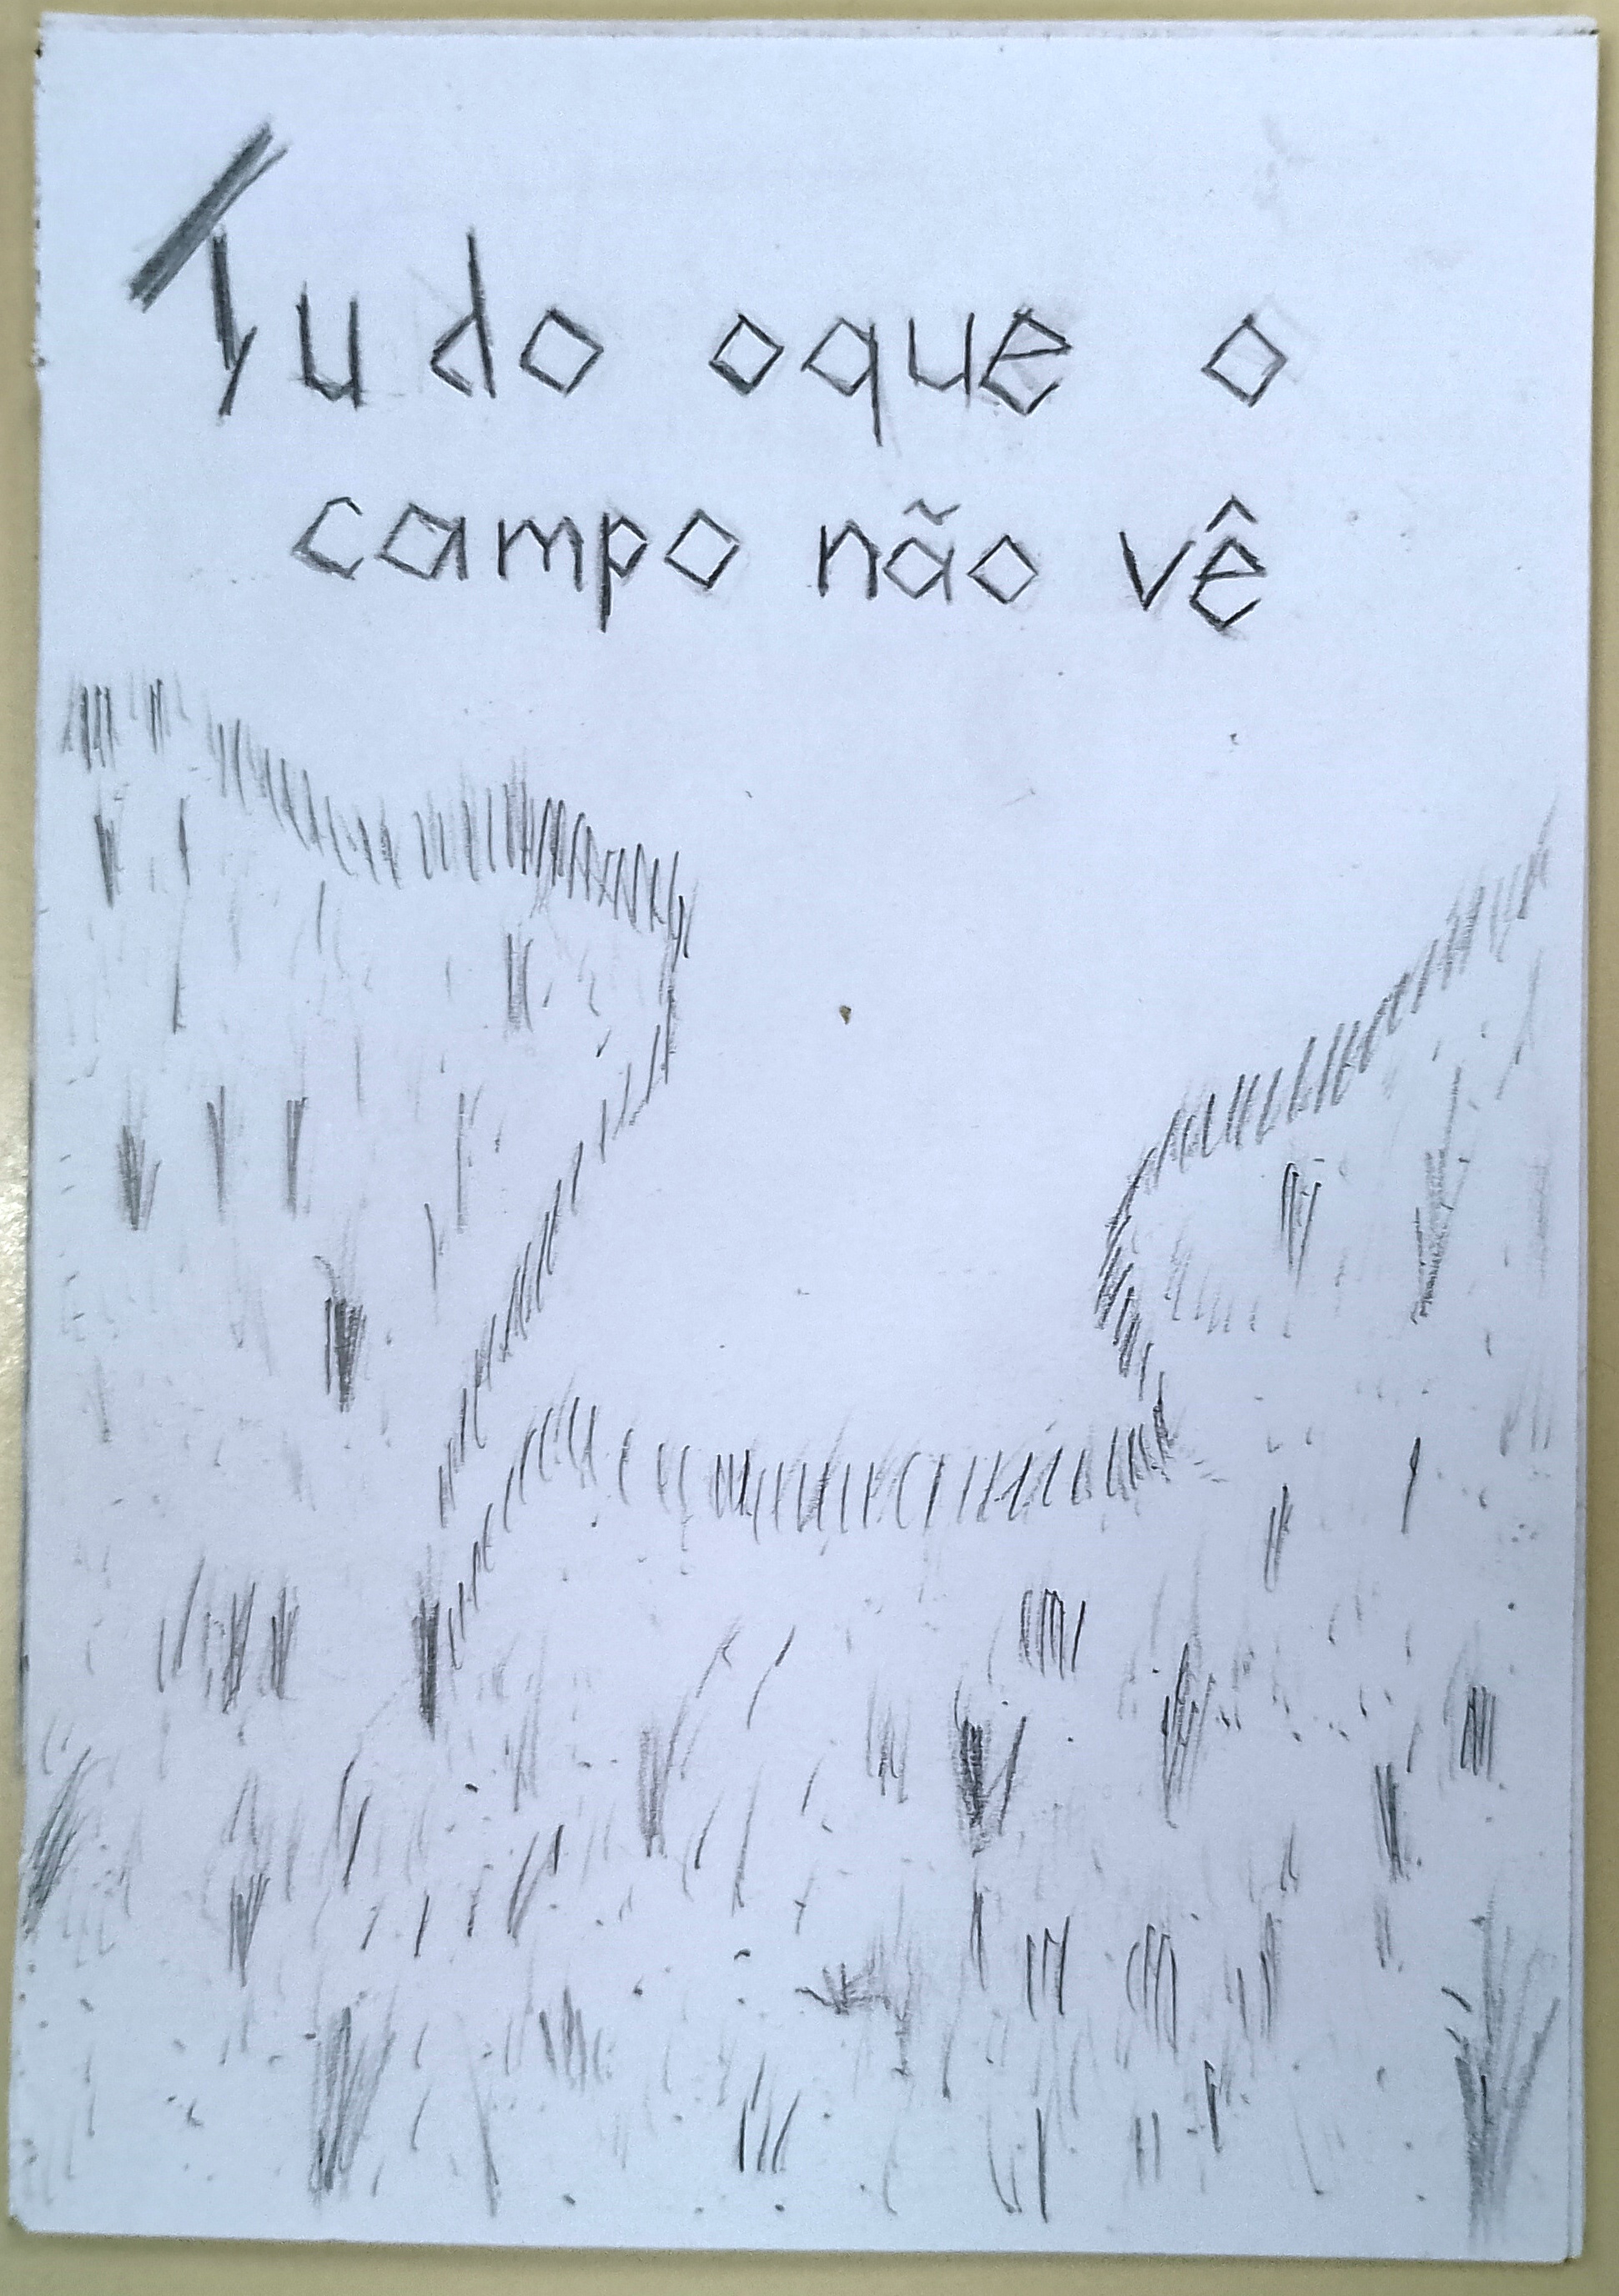 Tudo oque o
campo não vê